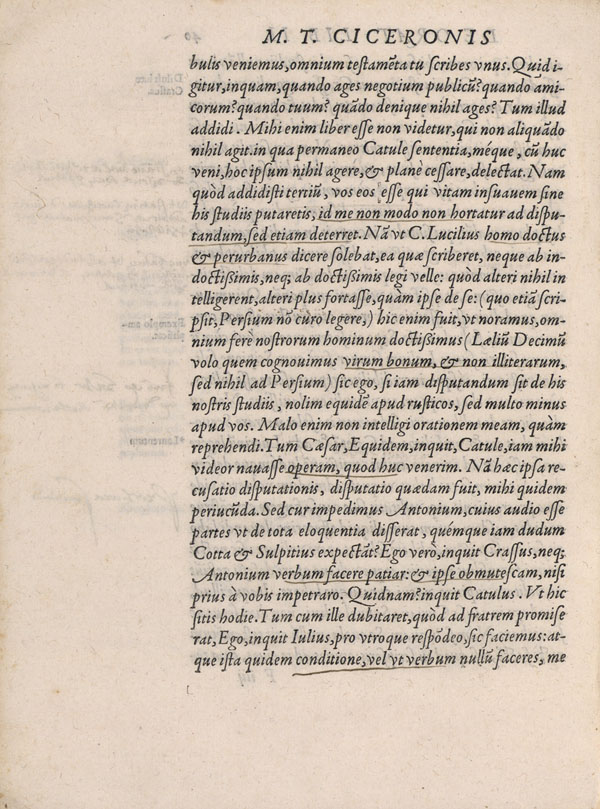 M. T. CICERONIS
bulis veniemus, omnium testamẽta tu scribes vnus. Quid i-
gitur, inquam, quando ages negotium publicũ? quando ami-
corum? quando tuum? quãdo denique nihil ages? Tum illud
addidi. Mihi enim liber esse non videtur, qui non aliquãdo
nihil agit. in qua permaneo Catule sententia, méque, cũ huc
veni, hoc ipsum nihil agere, & planè cessare, delectat. Nam
quòd addidisti tertiũ, vos eos esse qui vitam insuauem sine
his studiis putaretis, id me non modo non hortatur ad dispu-
tandum, sed etiam deterret. Nã vt C. Lucilius homo doctus
& perurbanus dicere solebat, ea quæ scriberet, neque ab in-
doctißimis, neq; ab doctißimis legi velle: quòd alteri nihil in
telligerent, alteri plus fortasse, quàm ipse de se: (quo etiã scri-
psit, Persium nõ curo legere,) hic enim fuit, vt noramus, om-
nium ferè nostrorum hominum doctißimus (Læliũ Decimũ
volo quem cognouimus virum bonum, & non illiterarum,
sed nihil ad Persium) sic ego, si iam disputandum sit de his
nostris studiis, nolim equidẽ apud rusticos, sed multo minus
apud vos. Malo enim non intelligi orationem meam, quàm
reprehendi. Tum Cæsar, Equidem, inquit, Catule, iam mihi
videor nauasse operam, quod huc venerim. Nã hæc ipsa re-
cusatio disputationis, disputatio quædam fuit, mihi quidem
periucũda. Sed cur impedimus Antonium, cuius audio esse
partes vt de tota eloquentia disserat, quémque iam dudum
Cotta & Sulpitius expectãt? Ego verò, inquit Crassus, neq;
Antonium verbum facere patiar: & ipse obmutescam, nisi
prius à vobis impetraro. Quidnam? inquit Catulus. Vt hic
sitis hodie. Tum cum ille dubitaret, quòd ad fratrem promise
rat, Ego, inquit Iulius, pro vtroque respõdeo, sic faciemus: at-
que ista quidem conditione, vel vt verbum nullũ faceres, me